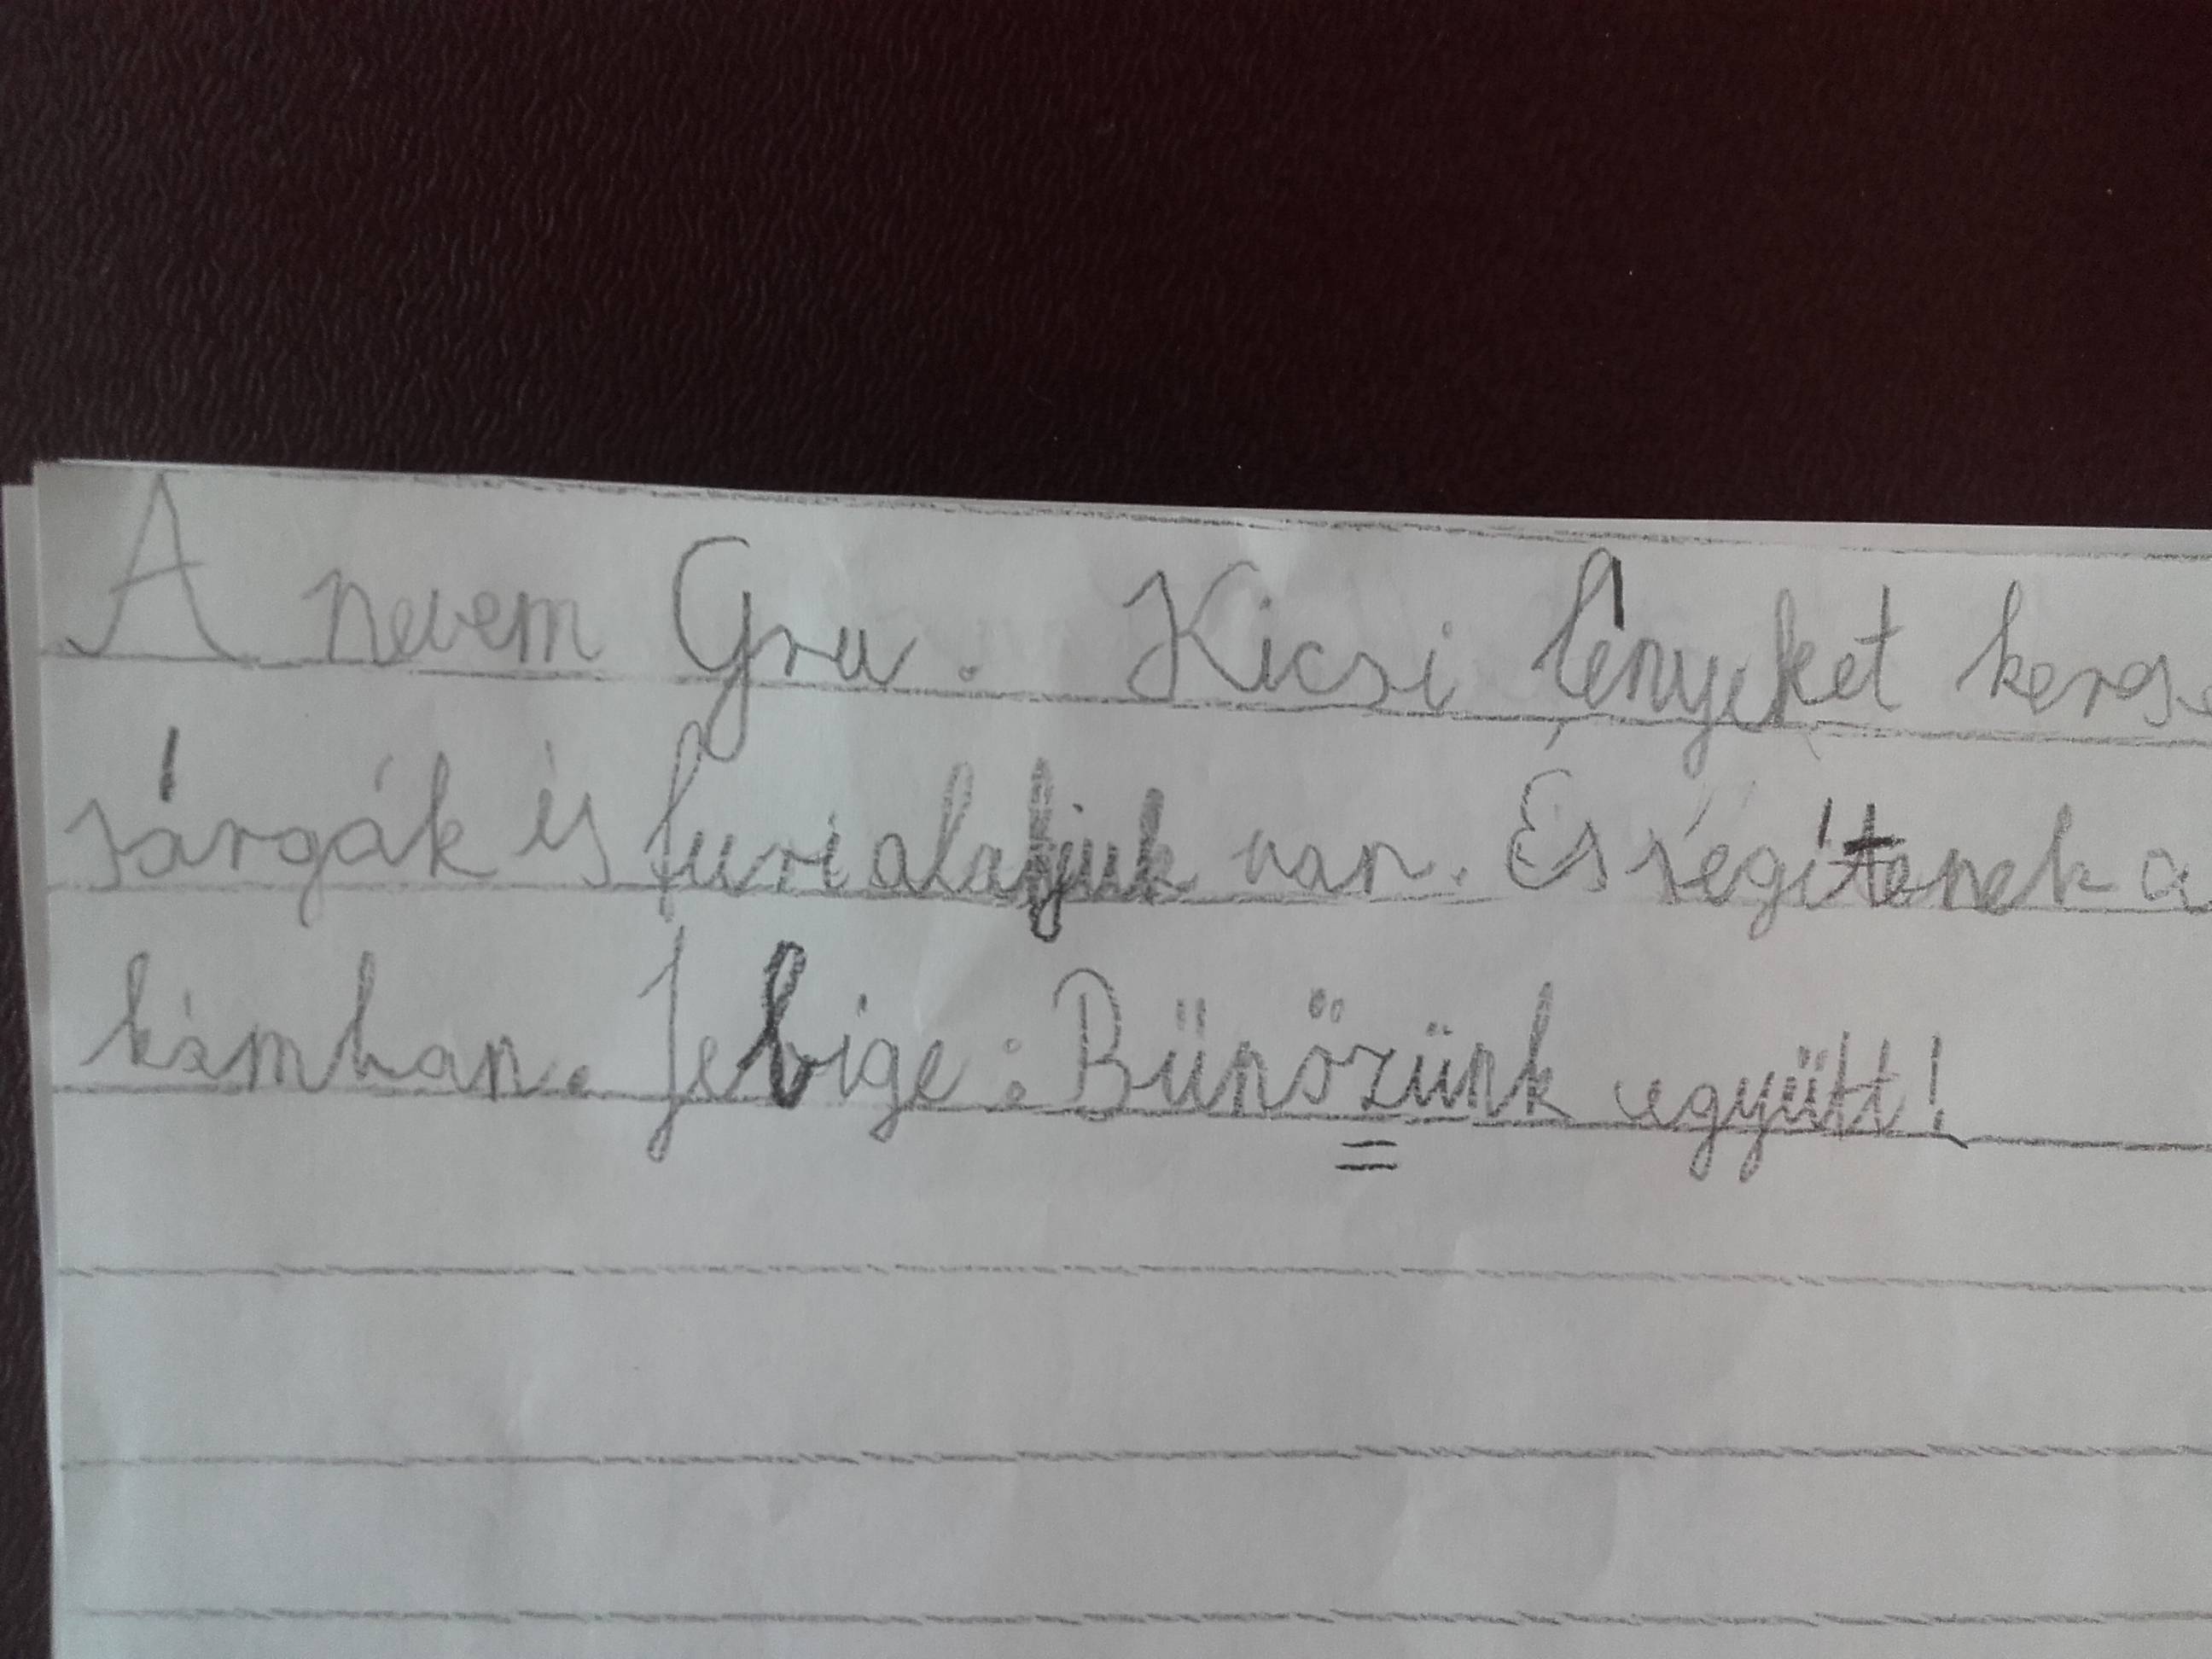 A nevem Gru. Kicsi lényeket keres
sárgák és furi alakjuk van. És segítenek a
kámban. Jelige: Bünözünk együtt!